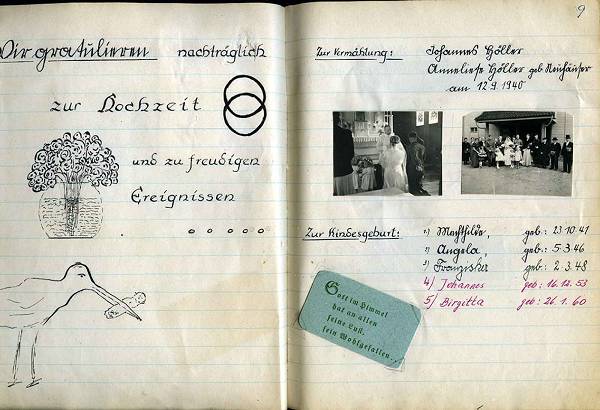 Wir gratulieren nachträglich
zur Hochzeit
und zu freudigen
Ereignissen
9
Zur Vermählung: Johannes Höller
Anneliese Höller geb. Neuhäuser
am 12.9.1940
Zur Kindesgeburt: 1.) Mechthilde, geb.: 23.10.41
2) Angela, geb.: 5.3.46
3) Franziska geb.: 2.3.48
4) Johannes geb: 16.12.53
5) Birgitta geb: 26.1.60
Gott im Himmel
hat an allen
seine Lust,
sein Wohlgefallen..